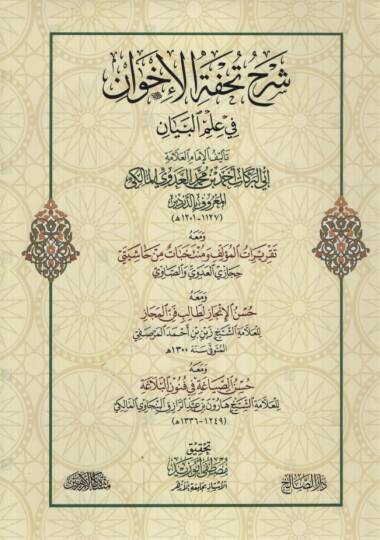 شرح تحفة الإخوان
في علم البيان
تأليف الإمام العلامة
أبي البركات أحمد بن محمد العدوي المالكي
المعروف بالدردير
(١١٢٧-١٢٠١هـ)
ومعه
تقريرات المؤلف ومنتخبات من حاشيتي
حجازي العدوي والصاوي
ومعه
حسن الإنجاز لطالب فن المجاز
للعلامة الشيخ زين بن أحمد المرصفي
المتوفى سنة ١٣٠٠هـ
ومعه
حسن الصياغة في فنون البلاغة
للعلامة الشيخ هارون بن عبد الرازق البنجاوي المالكي
(١٢٤٩-١٣٣٦هـ)
تحقيق
مصطفى أبو زيد
دار الصالح